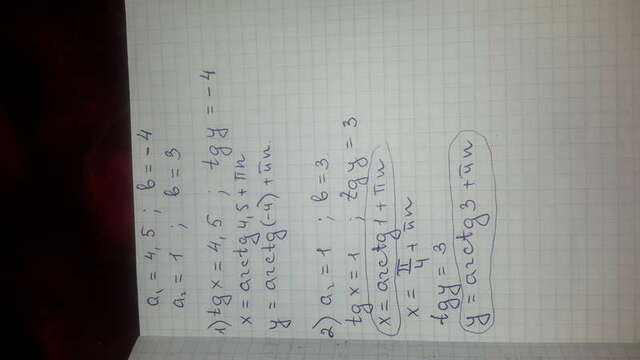 a₁ = 4,5 ; b = -4
a₂ = 1 ; b = 3
1) tg x = 4,5 ; tg y = -4
x = arctg 4,5 + πn
y = arctg(-4) + πn.
2) a₂ = 1 ; b = 3
tg x = 1 ; tg y = 3
x = arctg 1 + πn
x = π/4 + πn
tg y = 3
y = arctg 3 + πn